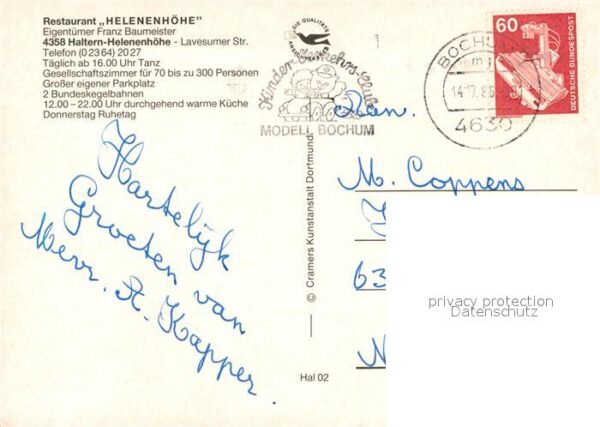 Restaurant „HELENENHÖHE"
Eigentümer Franz Baumeister
4358 Haltern-Helenenhöhe - Lavesumer Str.
Telefon (0 23 64) 20 27
Täglich ab 16.00 Uhr Tanz
Gesellschaftszimmer für 70 bis zu 300 Personen
Großer eigener Parkplatz
2 Bundeskegelbahnen
12.00 – 22.00 Uhr durchgehend warme Küche
Donnerstag Ruhetag
Hartelijk
Groeten van
Mevr. A. Kapper.
© Cramers Kunstanstalt Dortmund
Hal 02
DIE QUALITÄT
Kinder-Verkehrs-Club
MODELL BOCHUM
BOCHUM
4630
60
DEUTSCHE BUNDESPOST
Aan.
M. Coppens
63
N
privacy protection
Datenschutz